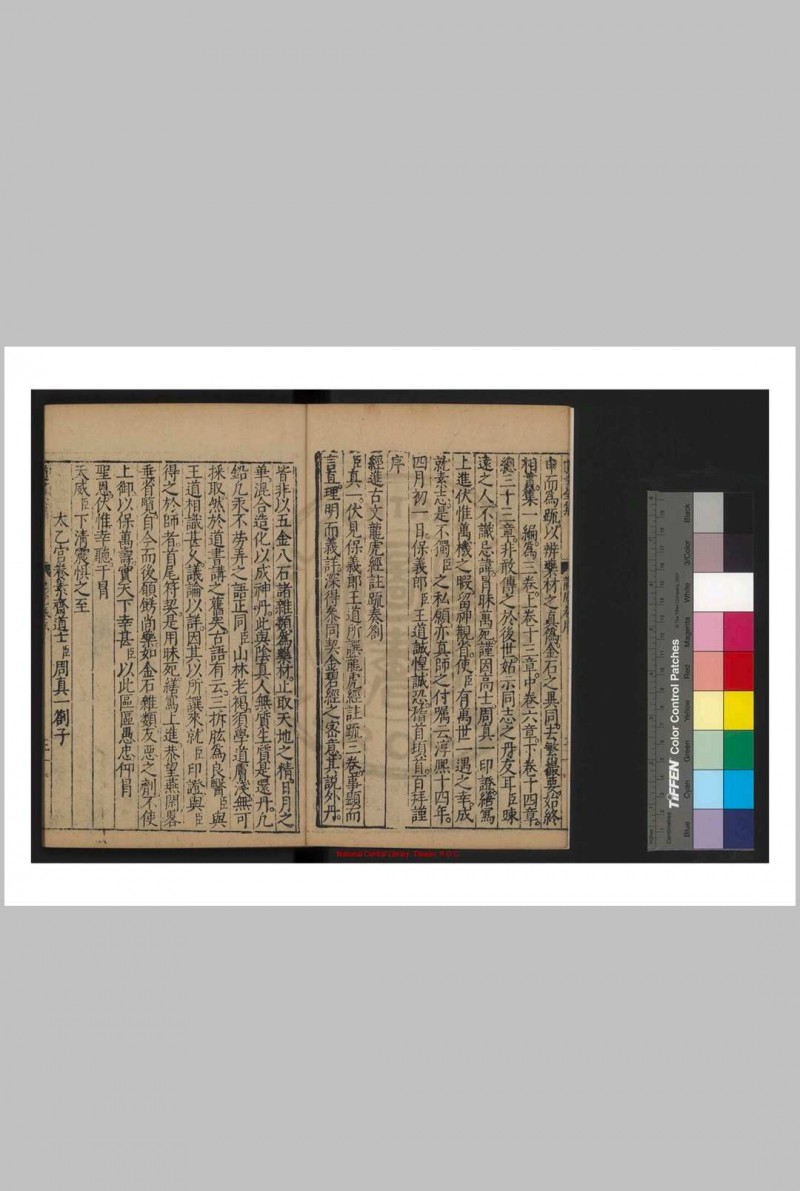 申而為疏以辨藥材之真偽金石之異同去繁撮要始終
相貫集一編為三卷上卷十三章中卷六章下卷十四章
總三十三章非敢傳之於後世姑示同志之丹友耳臣疎
遠之人不識忌諱冒昧萬死謹因高士周真一印證繕寫
上進伏惟萬機之暇留神觀省使臣有萬世一遇之幸成
就素志是不獨臣之私願亦真師之付囑云淳熙十四年
四月初一日保義郎臣王道誠惶誠恐稽首頓首百拜謹
序
經進古文龍虎經註疏奏劄
臣真一伏見保義郎王道所譔龍虎經註疏三卷事顯而
言直理明而義詳深得參同契金碧經之密意其說外丹
皆非以五金八石諸雜類為藥材止取天地之精日月之
華混合造化以成神丹此與陰真人無質生質是還丹凡
鉛凡汞不勞弄之語正同臣山林老褐須學道膚淺無可
採取然於道書講之舊矣古語有云三折肱為良醫臣與
王道相識甚久議論以詳因其以所譔來就臣印證與臣
得之於師者首尾符契是用昧死繕寫上進恭望燕閑畧
垂省覽自今而後願鐫尚藥如金石雜類友惡之劑不使
上御以保萬壽實天下幸甚臣以此區區愚忠仰冒
聖恩伏惟幸聽干冒
天威臣下清震懼之至
太乙宮養素齋道士臣周真一劄子
National Central Library, Taiwan, R.O.C
TIFFEN Color Control Patches
© The Tiffen Company, 2007
Centimetres
Blue
Cyan
Green
Yellow
Red
Magenta
White
3/Color
Black